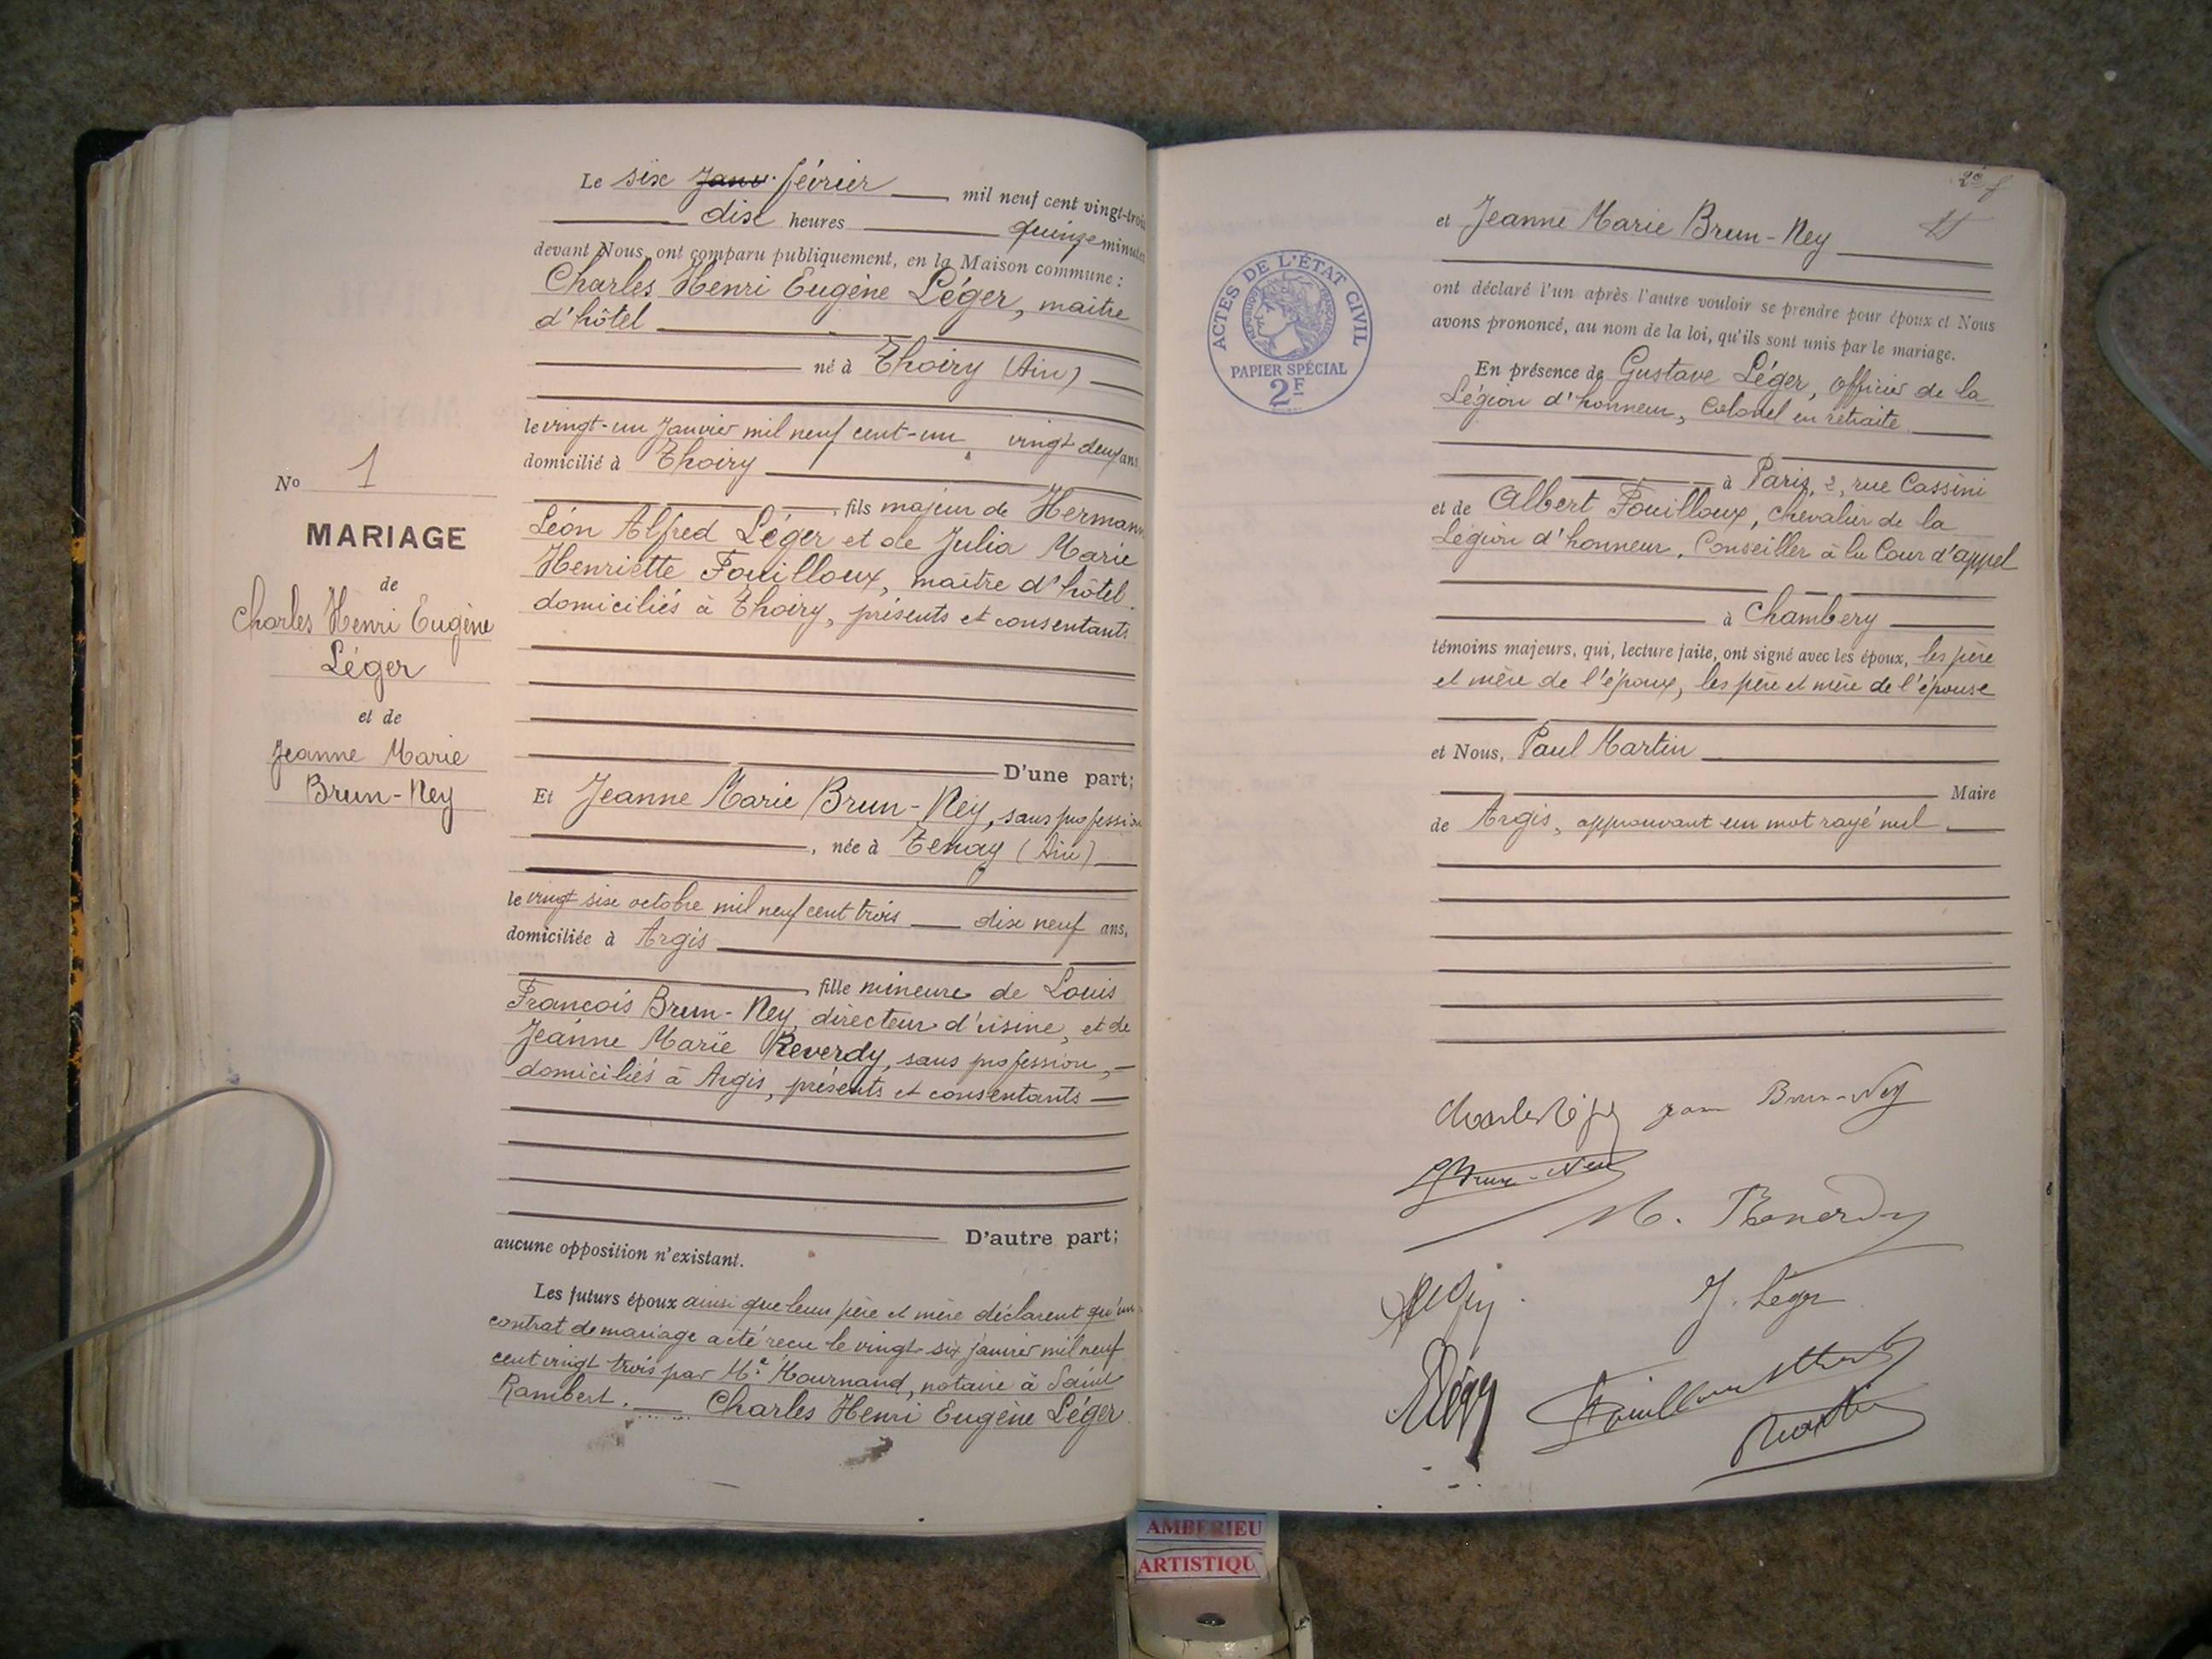 Le six Janv. février mil neuf cent vingt-trois
dix heures quinze minutes
devant Nous, ont comparu publiquement, en la Maison commune :
Charles Henri Eugène Léger, maitre
d'hôtel
né à Thoiry (Ain)
le vingt-un Janvier mil neuf cent-un, vingt deux ans
domicilié à Thoiry
, fils majeur de Hermann
Léon Alfred Léger et de Julia Marie
Henriette Fouilloux, maître d'hôtel
domiciliés à Thoiry, présents et consentants
D'une part;
Et Jeanne Marie Brun-Ney, sans profession
, née à Tenay (Ain)
le vingt six octobre mil neuf cent trois dix neuf ans,
domiciliée à Argis
, fille mineure de Louis
François Brun-Ney, directeur d'usine, et de
Jeanne Marie Reverdy, sans profession,
domiciliés à Argis, présents et consentants
D'autre part;
aucune opposition n'existant.
Les futurs époux ainsi que leurs père et mère déclarent qu'un
contrat de mariage a été reçu le vingt-six janvier mil neuf
cent vingt trois par Me Mournand, notaire à Saint
Rambert. Charles Henri Eugène Léger
No 1
MARIAGE
de
Charles Henri Eugène
Léger
et de
Jeanne Marie
Brun-Ney
et Jeanne Marie Brun-Ney
ont déclaré l'un après l'autre vouloir se prendre pour époux et Nous
avons prononcé, au nom de la loi, qu'ils sont unis par le mariage.
En présence de Gustave Léger, officier de la
Légion d'honneur, Colonel en retraite
à Paris, 2, rue Cassini
et de Albert Fouilloux, chevalier de la
Légion d'honneur, Conseiller à la Cour d'appel
à Chambery
témoins majeurs, qui, lecture faite, ont signé avec les époux, les père
et mère de l'époux, les père et mère de l'épouse
et Nous, Paul Martin
Maire
de Argis, approuvant un mot rayé nul.
ACTES DE L'ÉTAT CIVIL
RÉPUBLIQUE FRANÇAISE
PAPIER SPÉCIAL
2F
Brun-Ney
Brun-Ney
J. Léger
Léger
Martin
AMBERIEU
ARTISTIQU